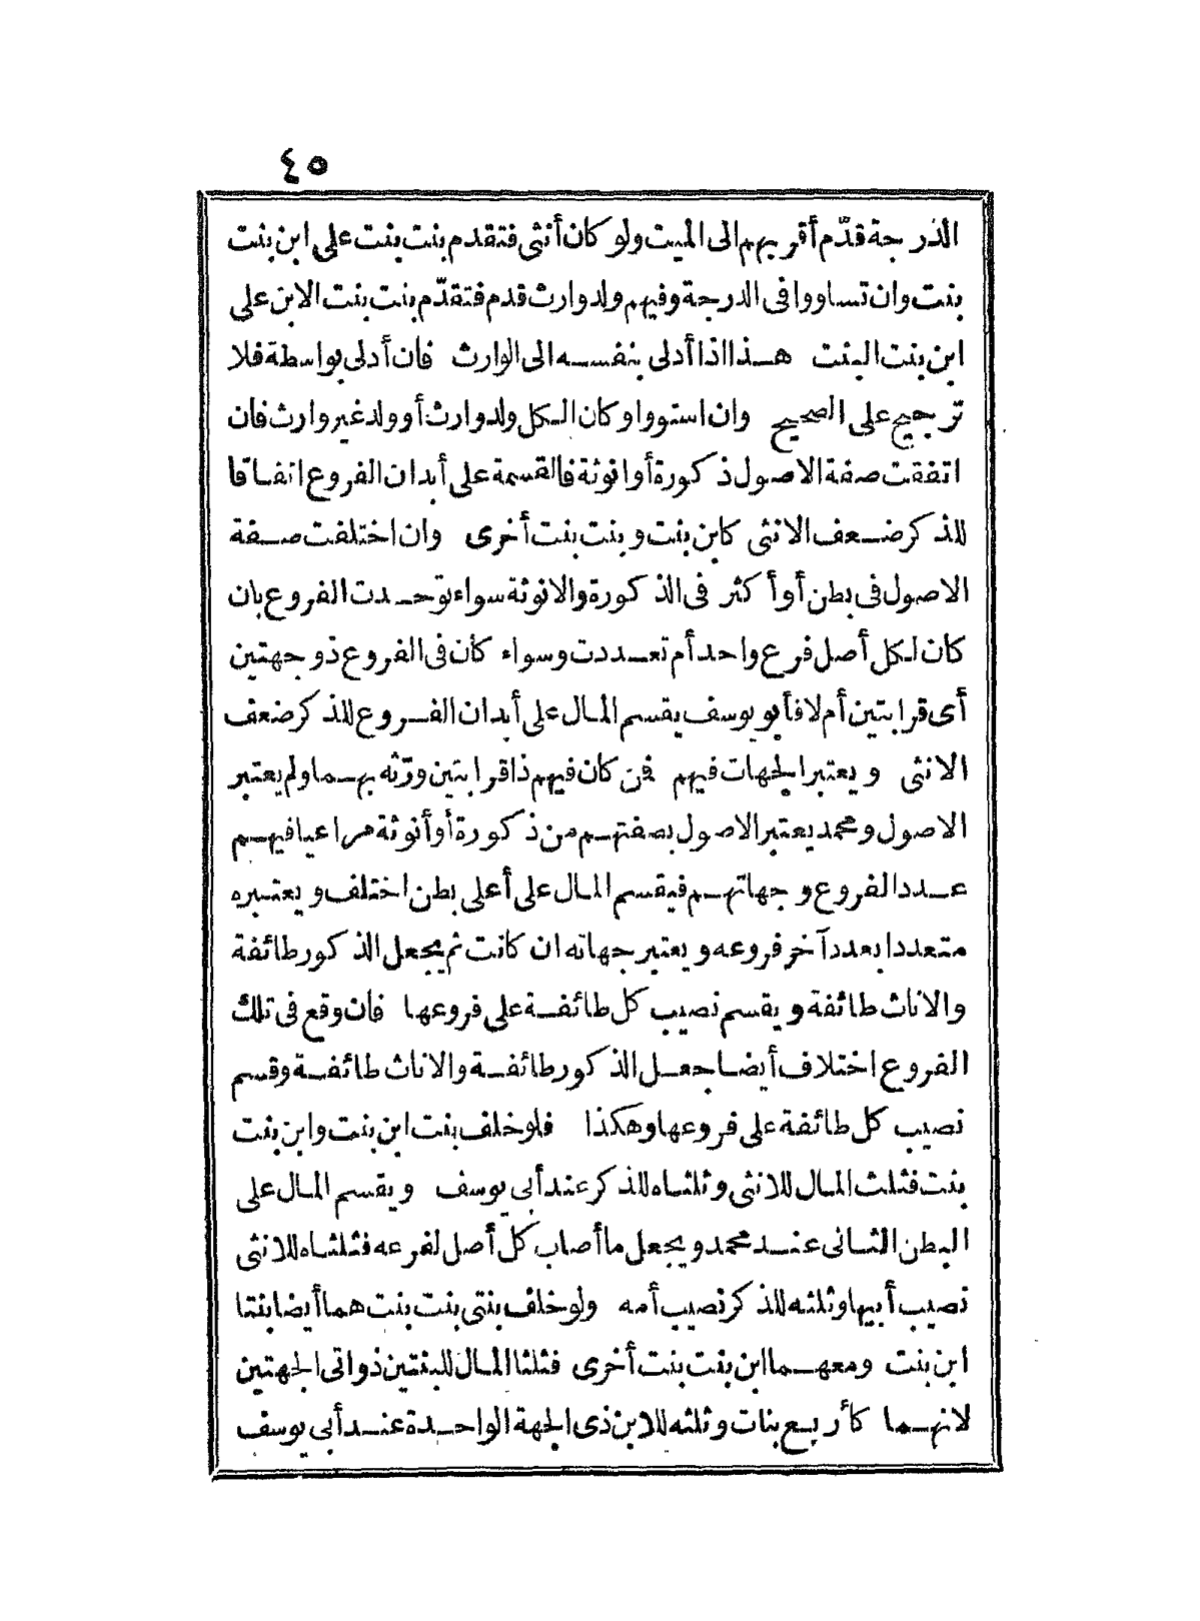 ٤٥
الدرجة قدّم أقربهم الى الميت ولو كان أنثى فتقدم بنت بنت على ابن بنت
بنت وان تساووا فى الدرجة وفيهم ولد وارث قدم فتقدّم بنت بنت الابن على
ابن بنت البنت هذا اذا أدلى بنفسه الى الوارث فان أدلى بواسطة فلا
ترجيح على الصحيح وان استووا وكان الكل ولد وارث أو ولد غير وارث فان
اتفقت صفة الاصول ذكورة أو انوثة فالقسمة على أبدان الفروع اتفاقا
للذكر ضعف الانثى كابن بنت وبنت بنت أخرى وان اختلفت صفة
الاصول فى بطن أو أكثر فى الذكورة والانوثة سواء توحدت الفروع بان
كان لكل أصل فرع واحد أم تعددت وسواء كان فى الفروع ذو جهتين
أى قرابتين أم لا فأبو يوسف يقسم المال على أبدان الفروع للذكر ضعف
الانثى ويعتبر الجهات فيهم فمن كان فيهم ذا قرابتين ورّثه بهما ولم يعتبر
الاصول ومحمد يعتبر الاصول بصفتهم من ذكورة أو أنوثة مراعيا فيهم
عدد الفروع وجهاتهم فيقسم المال على أعلى بطن اختلف ويعتبره
متعددا بعدد آخر فروعه ويعتبر جهاته ان كانت ثم يجعل الذكور طائفة
والاناث طائفة ويقسم نصيب كل طائفة على فروعها فان وقع فى تلك
الفروع اختلاف أيضا جعل الذكور طائفة والاناث طائفة وقسم
نصيب كل طائفة على فروعها وهكذا فلو خلف بنت ابن بنت وابن بنت
بنت فثلث المال للانثى وثلثاه للذكر عند أبى يوسف ويقسم المال على
البطن الثانى عند محمد ويجعل ما أصاب كل أصل لفرعه فثلثاه للانثى
نصيب أبيها وثلثه للذكر نصيب أمه ولو خلف بنتى بنت بنت هما أيضا بنتا
ابن بنت ومعهما ابن بنت بنت أخرى فثلثا المال للبنتين ذواتى الجهتين
لانهما كأربع بنات وثلثه للابن ذى الجهة الواحدة عند أبى يوسف